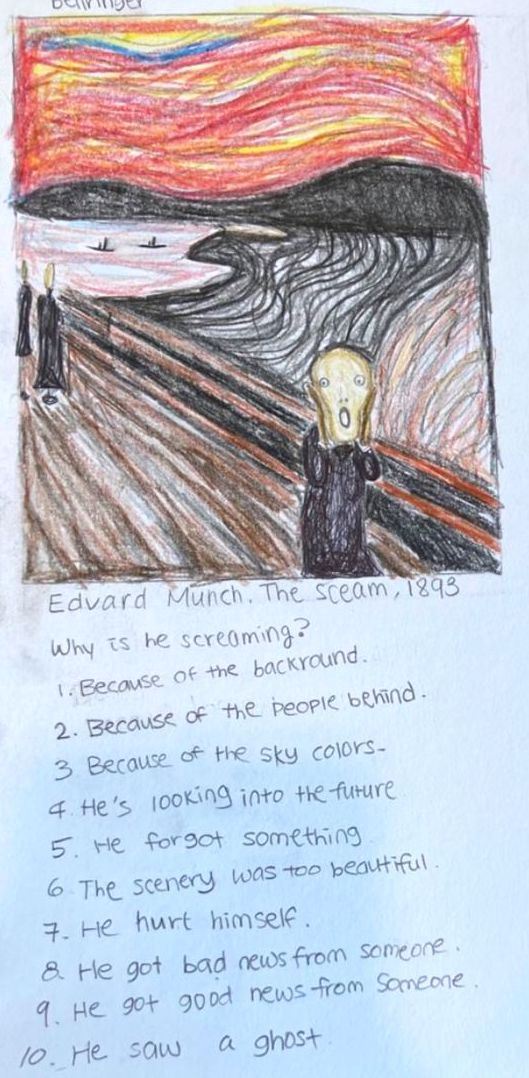 Edvard Munch. The Sceam, 1893
Why is he screaming?
1. Because of the backround.
2. Because of the people behind.
3 Because of the sky colors-
4. He's looking into the future
5. He forgot something
6 The scenery was too beautiful.
7. He hurt himself.
8. He got bad news from someone.
9. He got good news from someone.
10. He saw a ghost